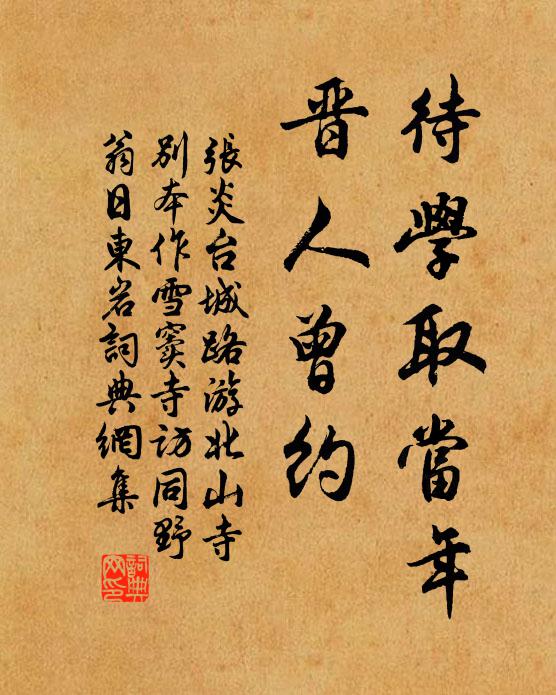 待學取當年
晋人曾約
張炎台城路游北山寺
别本作雪窦寺访同野
翁日東岩詞典網集
詞典网印